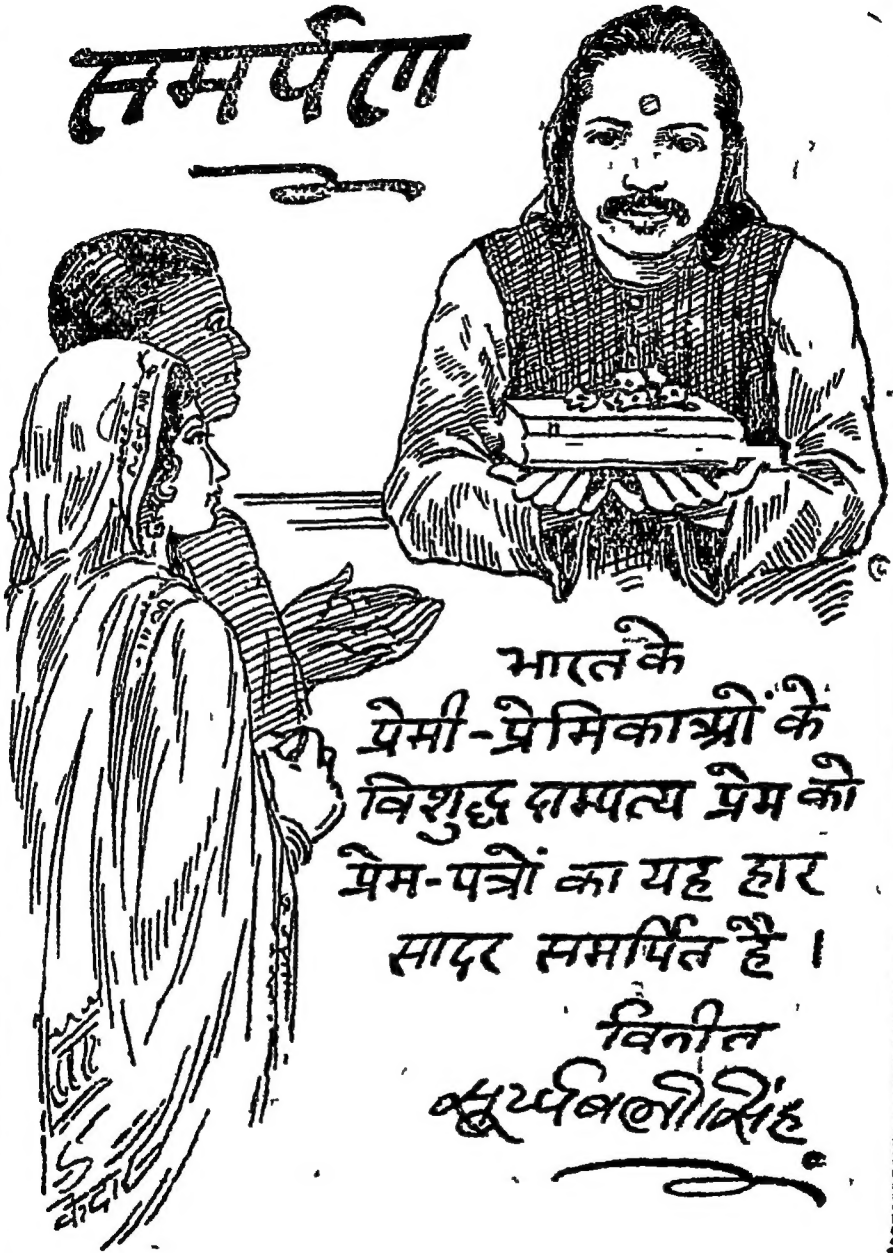 समर्पण
भारत के
प्रेमी-प्रेमिकाओं के
विशुद्ध दाम्पत्य प्रेम को
प्रेम-पत्रों का यह हार
सादर समर्पित है ।
विनीत
सूर्य्यबलीसिंह
केदार